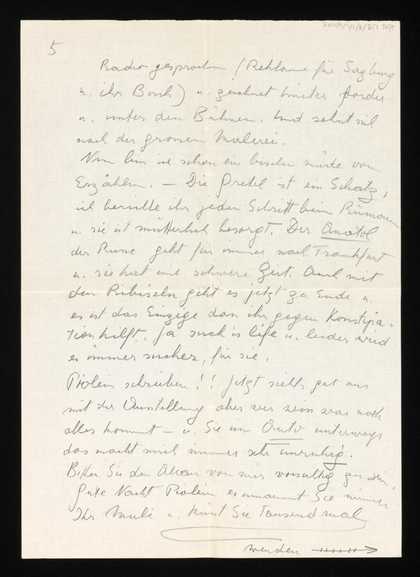 5
Radio gesprochen (Reklame für Salzburg
u. ihr Buch) u. zeichnet hinter
u. unter den Bühnen. Und sehnt sich
nach der grossen Malerei.
Nun bin ich schon ein bissl müde von
Erzählen. – Die Gretel ist ein Schatz,
ich berichte ihr jeden Schritt beim
u. sie ist mütterlich besorgt. Der Anatol
der Arme geht für immer nach Frankfurt
u. sie hat eine schwere Zeit. Auch mit
den Ribiseln geht es jetzt zu Ende u.
es ist das Einzige das ihr gegen Konstipa-
tion hilft. Ja such is life u. leider wird
es immer sucher, für sie.
schreiben!! Jetzt sieht's gut aus
mit der Ausstellung aber wer weiss was noch
alles kommt – u. Sie im Auto unterwegs
das macht mich immer sehr unruhig.
Bitte Sie den von mir vorsichtig zu sein.
Gute Nacht es umarmt Sie immer
Ihr u. küsst Sie Tausendmal
wenden